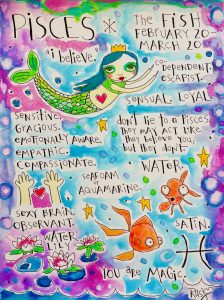 PISCES * the FISH
FEBRUARY 20-
MARCH 20
"i believe.
co-
DEPENDENT.
ESCAPIST.
SENSUAL. LOYAL.
SENSITIVE.
GRACIOUS.
EMOTIONALLY AWARE.
EMPATHIC.
COMPASSIONATE.
don't lie to a PISCES.
they MAY ACT LIKE
they BELIEVE YOU,
but they DON'T.
WATER.
SEAFOAM
or
AQUAMARINE.
SEXY BRAIN.
OBSERVANT.
WATER
LILY
SATIN.
YOU ARE MAGIC.